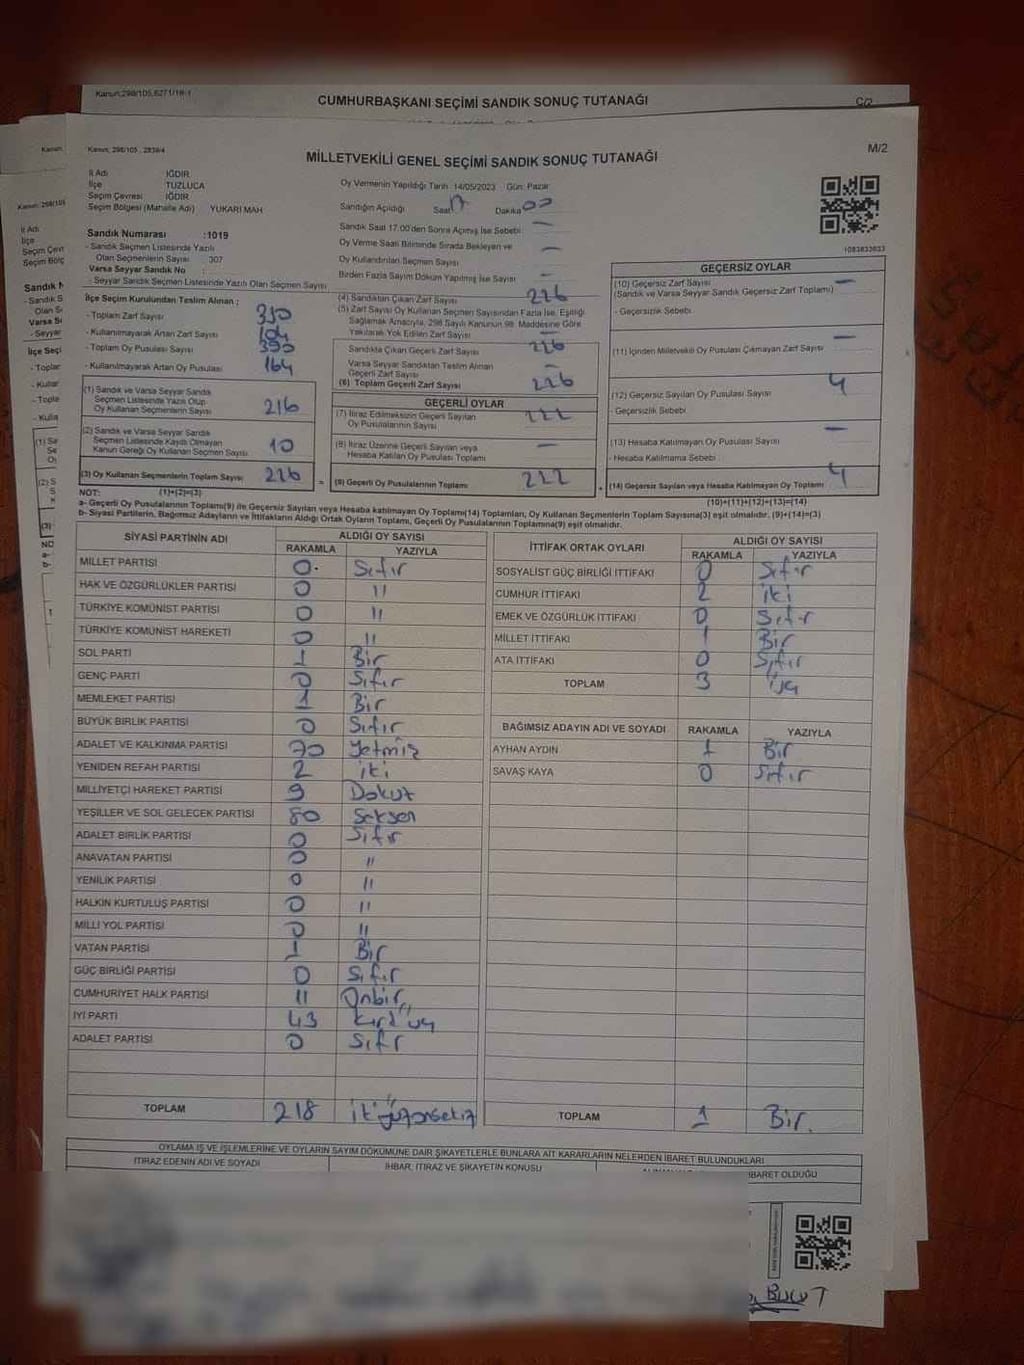 Kanun; 298/105, 6271/18-1
CUMHURBAŞKANI SEÇİMİ SANDIK SONUÇ TUTANAĞI
C/2
Kanun; 298/105 , 2839/4
MİLLETVEKİLİ GENEL SEÇİMİ SANDIK SONUÇ TUTANAĞI
M/2
İl Adı IĞDIR
İlçe TUZLUCA
Seçim Çevresi IĞDIR
Seçim Bölgesi (Mahalle Adı) YUKARI MAH
Sandık Numarası :1019
- Sandık Seçmen Listesinde Yazılı
Olan Seçmenlerin Sayısı 307
Varsa Seyyar Sandık No :
- Seyyar Sandık Seçmen Listesinde Yazılı Olan Seçmen Sayısı
Oy Vermenin Yapıldığı Tarih 14/05/2023 Gün: Pazar
Sandığın Açıldığı Saat 17 Dakika 00
Sandık Saat 17.00'den Sonra Açılmış İse Sebebi: —
Oy Verme Saati Bitiminde Sırada Bekleyen ve
Oy Kullandırılan Seçmen Sayısı —
Birden Fazla Sayım Döküm Yapılmış İse Sayısı —
1083833633
İlçe Seçim Kurulundan Teslim Alınan ;
- Toplam Zarf Sayısı 390
- Kullanılmayarak Artan Zarf Sayısı 164
- Toplam Oy Pusulası Sayısı 390
- Kullanılmayarak Artan Oy Pusulası 164
(1) Sandık ve Varsa Seyyar Sandık
Seçmen Listesinde Yazılı Olup
Oy Kullanan Seçmenlerin Sayısı 216
(2) Sandık ve Varsa Seyyar Sandık
Seçmen Listesinde Kayıtlı Olmayan
Kanun Gereği Oy Kullanan Seçmen Sayısı 10
(3) Oy Kullanan Seçmenlerin Toplam Sayısı 226 =
(4) Sandıktan Çıkan Zarf Sayısı 226
(5) Zarf Sayısı Oy Kullanan Seçmen Sayısından Fazla İse, Eşitliği
Sağlamak Amacıyla, 298 Sayılı Kanunun 98. Maddesine Göre
Yakılarak Yok Edilen Zarf Sayısı —
Sandıkta Çıkan Geçerli Zarf Sayısı 226
Varsa Seyyar Sandıktan Teslim Alınan
Geçerli Zarf Sayısı —
(6) Toplam Geçerli Zarf Sayısı 226
GEÇERLİ OYLAR
(7) İtiraz Edilmeksizin Geçerli Sayılan
Oy Pusulalarının Sayısı 222
(8) İtiraz Üzerine Geçerli Sayılan veya
Hesaba Katılan Oy Pusulası Toplamı —
(9) Geçerli Oy Pusulalarının Toplamı 222 +
GEÇERSİZ OYLAR
(10) Geçersiz Zarf Sayısı —
(Sandık ve Varsa Seyyar Sandık Geçersiz Zarf Toplamı)
- Geçersizlik Sebebi
(11) İçinden Milletvekili Oy Pusulası Çıkmayan Zarf Sayısı —
(12) Geçersiz Sayılan Oy Pusulası Sayısı 4
- Geçersizlik Sebebi
(13) Hesaba Katılmayan Oy Pusulası Sayısı —
- Hesaba Katılmama Sebebi
(14) Geçersiz Sayılan veya Hesaba Katılmayan Oy Toplamı 4
NOT: (1)+(2)=(3)
(10)+(11)+(12)+(13)=(14)
a- Geçerli Oy Pusulaları Toplamı(9) ile Geçersiz Sayılan veya Hesaba katılmayan Oy Toplamı(14) Toplamları, Oy Kullanan Seçmenlerin Toplam Sayısına(3) eşit olmalıdır. (9)+(14)=(3)
b- Siyasi Partilerin, Bağımsız Adayların ve İttifakların Aldığı Ortak Oyların Toplamı, Geçerli Oy Pusulalarının Toplamına(9) eşit olmalıdır.
SİYASİ PARTİNİN ADI ALDIĞI OY SAYISI
RAKAMLA YAZIYLA
MİLLET PARTİSİ 0 Sıfır
HAK VE ÖZGÜRLÜKLER PARTİSİ 0 "
TÜRKİYE KOMÜNİST PARTİSİ 0 "
TÜRKİYE KOMÜNİST HAREKETİ 0 "
SOL PARTİ 1 Bir
GENÇ PARTİ 0 Sıfır
MEMLEKET PARTİSİ 1 Bir
BÜYÜK BİRLİK PARTİSİ 0 Sıfır
ADALET VE KALKINMA PARTİSİ 70 Yetmiş
YENİDEN REFAH PARTİSİ 2 iki
MİLLİYETÇİ HAREKET PARTİSİ 9 Dokuz
YEŞİLLER VE SOL GELECEK PARTİSİ 80 Seksen
ADALET BİRLİK PARTİSİ 0 Sıfır
ANAVATAN PARTİSİ 0 "
YENİLİK PARTİSİ 0 "
HALKIN KURTULUŞ PARTİSİ 0 "
MİLLİ YOL PARTİSİ 0 "
VATAN PARTİSİ 1 Bir
GÜÇ BİRLİĞİ PARTİSİ 0 Sıfır
CUMHURİYET HALK PARTİSİ 11 Onbir
İYİ PARTİ 43 Kırküç
ADALET PARTİSİ 0 Sıfır
TOPLAM 218 ikiyüzonsekiz
İTTİFAK ORTAK OYLARI ALDIĞI OY SAYISI
RAKAMLA YAZIYLA
SOSYALİST GÜÇ BİRLİĞİ İTTİFAKI 0 Sıfır
CUMHUR İTTİFAKI 2 iki
EMEK VE ÖZGÜRLÜK İTTİFAKI 0 Sıfır
MİLLET İTTİFAKI 1 Bir
ATA İTTİFAKI 0 Sıfır
TOPLAM 3 üç
BAĞIMSIZ ADAYIN ADI VE SOYADI RAKAMLA YAZIYLA
AYHAN AYDIN 1 Bir
SAVAŞ KAYA 0 Sıfır
TOPLAM 1 Bir.
OYLAMA İŞ VE İŞLEMLERİNE VE OYLARIN SAYIM DÖKÜMÜNE DAİR ŞİKAYETLERLE BUNLARA AİT KARARLARIN NELERDEN İBARET BULUNDUKLARI
İTİRAZ EDENİN ADI VE SOYADI İHBAR, İTİRAZ VE ŞİKAYETİN KONUSU İBARET OLDUĞU
BULUT